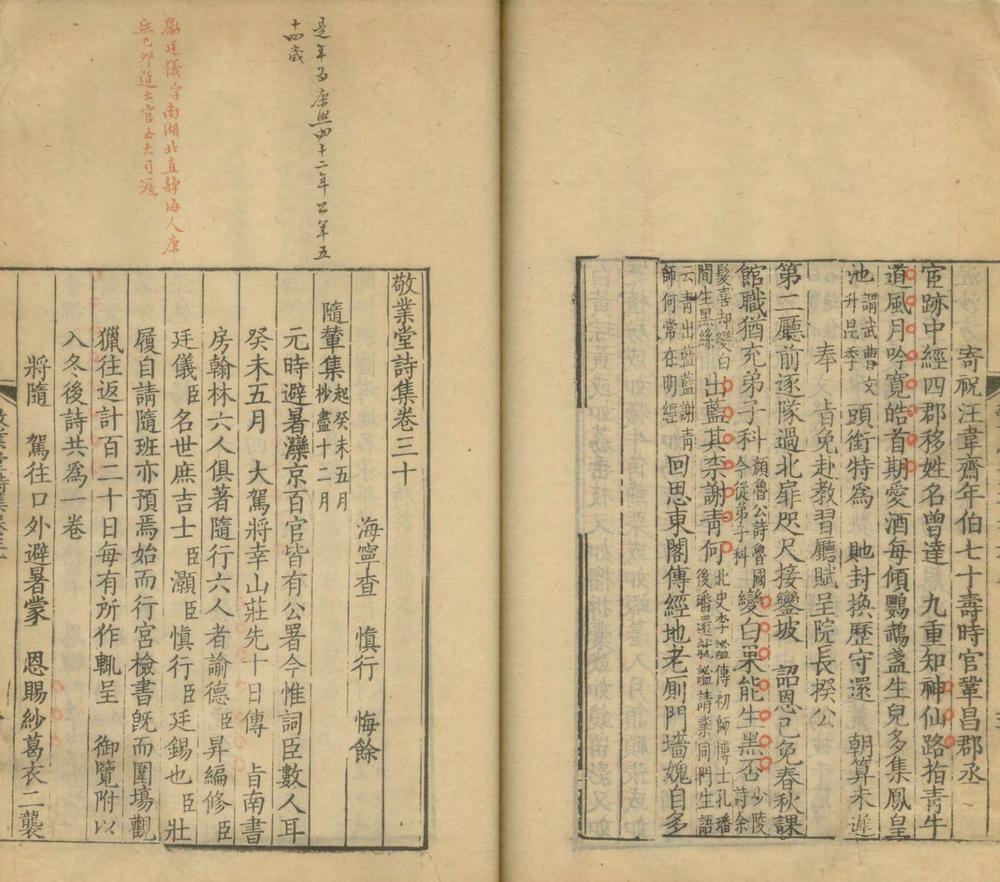 寄祝汪韋齋年伯七十壽時官鞏昌郡丞
宦跡中經四郡移姓名曾達 九重知神仙路指青牛
道風月吟寬皓首期愛酒每傾鸚鵡盞生兒多集鳳皇
池謂武曹文升昆季頭銜特爲 貤封換歷守還 朝算未遲
奉 旨免赴教習廳賦呈院長揆公
第二廳前逐隊過北扉咫尺接鑾坡 詔恩已免春秋課
館職猶充弟子科顏魯公詩魯國今從弟子科變白果能生黑否少陵詩余
髮喜却變白間生黑絲出藍其柰謝青何北史李謐傳初師博士孔璠後璠還就謐請業同門生語
云青出藍藍謝青師何常在明經回思東閣傳經地老厠門墻媿自多
是年爲康熙四十二年公年五
十四歲
廷儀字南湖北直靜海人康
熙己卯進士官至大司寇
敬業堂詩集卷三十
海寧查 愼行 悔餘
隨輦集起癸未五月抄盡十二月
元時避暑灤京百官皆有公署今惟詞臣數人耳
癸未五月 大駕將幸山莊先十日傳 旨南書
房翰林六人俱著隨行六人者諭德臣昇編修臣
廷儀臣名世庶吉士臣灝臣愼行臣廷錫也臣壯
履自請隨班亦預焉始而行宮檢書旣而圍場觀
獵往返計百二十日每有所作輒呈 御覽附以
入冬後詩共爲一卷
將隨 駕往口外避暑蒙 恩賜紗葛衣二襲